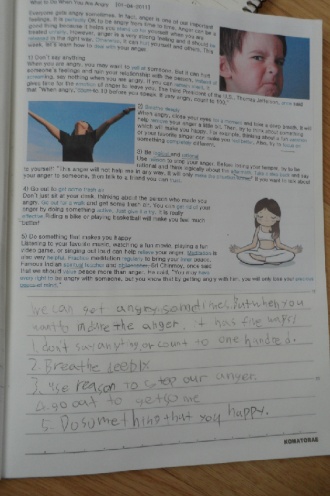 What to Do When You Are Angry [01-04-2011]
Everyone gets angry sometimes. In fact, anger is one of our important
feelings. It is OK to be angry from time to time. Anger can be a
good thing because it helps you stand up for yourself when you are
treated unfairly. However, anger is a very strong feeling and it should be
in the right way. Otherwise, it can hurt yourself and others. This
week, let's learn how to deal with our anger.
1) Don't say anything
When you are angry, you may want to yell at someone. But it can hurt
someone's feelings and ruin your relationship with the person. Instead of
, say nothing when you are angry. If you just remain silent, it
gives time for the of anger to leave you. The third President of the U.S., Thomas Jefferson, once said
that "When angry, count to 10 before you speak. If very angry, count to 100."
2) Breathe deeply
When angry, close your eyes for a moment and take a deep breath. It will
help your anger a little bit. Then, try to think about something
which will make you happy. For example, thinking about a fun vacation
or your favorite singer may make you feel better. Also, try to focus on
something completely different.
3) Be and
Use to stop your anger. Before losing your temper, try to be
rational and think logically about the. Take a deep breath and say
to yourself: "This anger will not help me in any way. It will only make the situation worse." If you want to talk about
your anger to someone, then talk to a friend you can trust.
4) Go out to get some fresh air
Don't just sit at your desk, thinking about the person who made you
angry. Go out for a walk and get some fresh air. You can get rid of your
anger by doing something active. Just give it a try. It is really
effective. Riding a bike or playing basketball will make you feel much
better!
5) Do something that makes you happy
Listening to your favorite music, watching a fun movie, playing a fun
video game, or singing out loud it can help relieve your anger. Meditation is
also very helpful. Practice meditation regularly to bring your inner peace.
Famous Indian spiritual teacher and, Sri Chinmoy, once said
that we should value peace more than anger. He said, "You may have
every right to be angry with someone, but you know that by getting angry with him, you will only lose your precious
peace of mind."
We can get angry sometimes. But when you
want to the anger, it has five ways!
1. don't say anything or count to one hundred.
2. Breathe deeply
3. Use reason to stop our anger.
4. go out to get some
5. Do something that you happy.